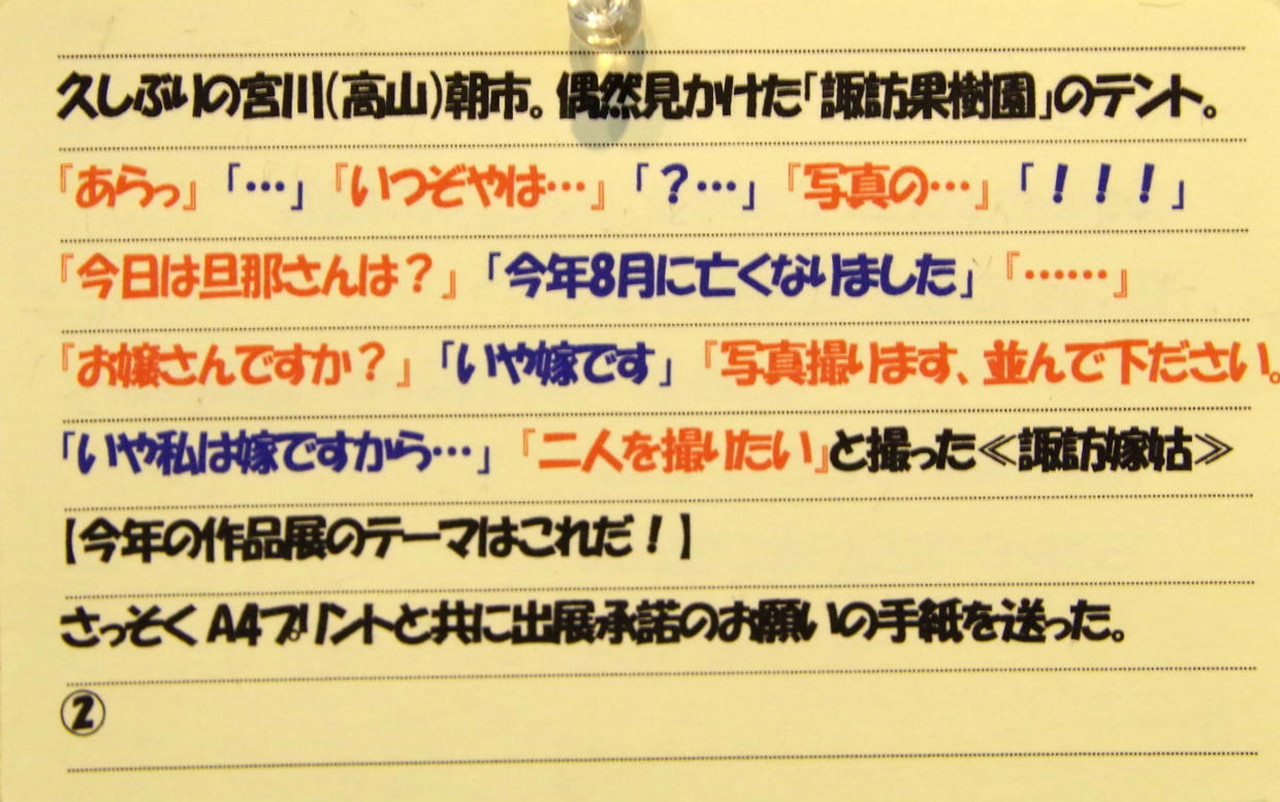 久しぶりの宮川(高山)朝市。偶然見かけた「諏訪果樹園」のテント。
『あらっ』「…」『いつぞやは…』「？…」『写真の…』「！！！」
『今日は旦那さんは？』「今年8月に亡くなりました」『……』
『お嬢さんですか？』「いや嫁です」『写真撮ります、並んで下ださい。
「いや私は嫁ですから…」『二人を撮りたい』と撮った≪諏訪嫁姑≫
【今年の作品展のテーマはこれだ！】
さっそく A4プリントと共に出展承諾のお願いの手紙を送った。
②